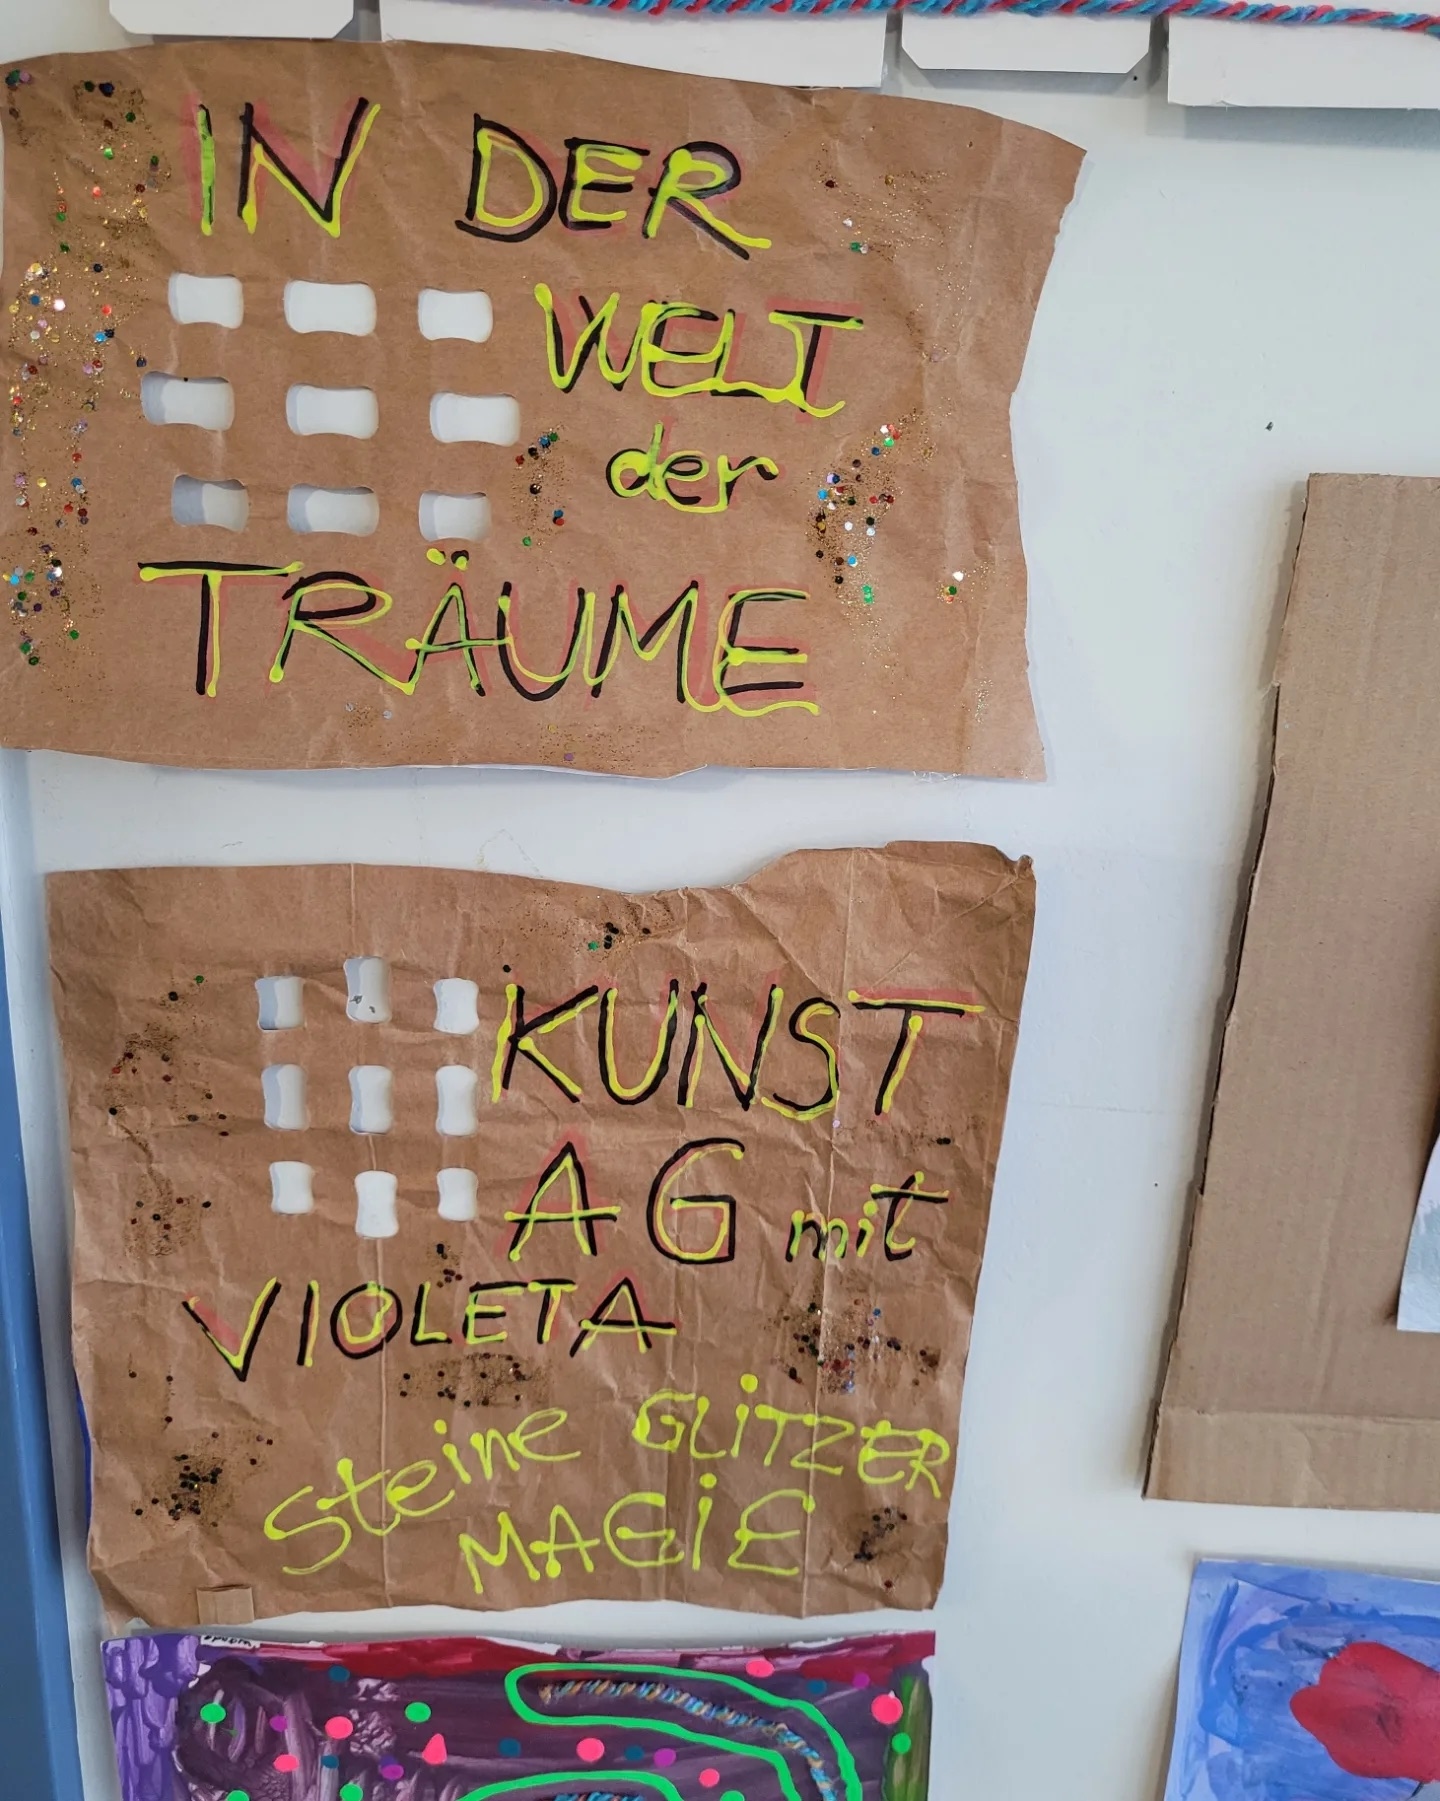 IN DER
WELT
der
TRÄUME
KUNST
AG mit
VIOLETA
Steine GLITZER
MAGIE